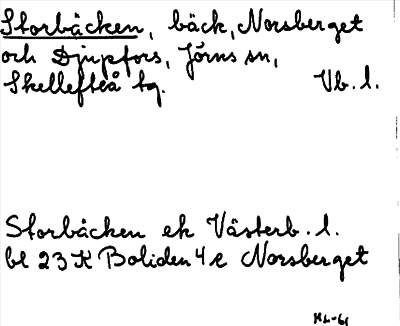 Storbäcken, bäck, Norsberget
och Djupfors, Jörns sn,
Skellefteå tg. Vb. l.
Storbäcken ek Västerb. l.
bl 23 K Boliden 4 e Norsberget
HL-61